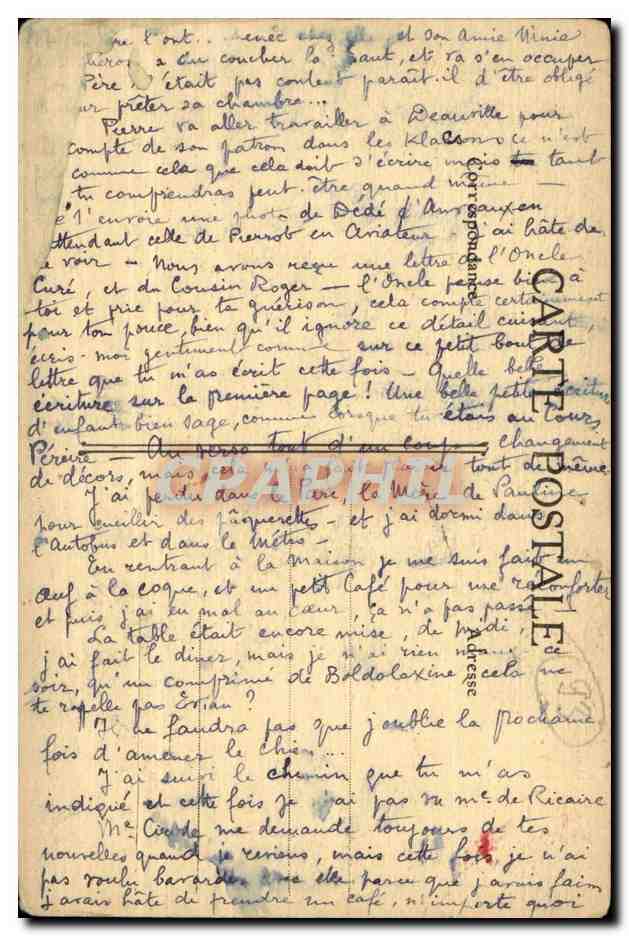 l'ont chez et son Amie Ninie
du coucher la haut, et va s'en occuper
Père n'était pas content paraît-il d'être obligé
prêter sa chambre...
Pierre va aller travailler à Deauville pour
compte de son patron dans les Klacson ce n'est
comme cela que cela doit s'écrire mais tant
tu comprendras peut-être quand même —
J'envoie une photo de Dédé d'
attendant celle de Pierrot en Aviateur — j'ai hâte de
voir — Nous avons reçu une lettre de l'Oncle
Curé, et du Cousin Roger — l'Oncle pense bien à
toi et prie pour ta guérison, cela compte certainement
pour ton pouce, bien qu'il ignore ce détail cuisant,
écris-moi gentiment comme sur ce petit bout de
lettre que tu m'as écrit cette fois — Quelle belle
écriture sur la première page ! Une belle petite écriture
d'enfant bien sage, comme lorsque tu étais au Cours
Péreire — Au verso tout d'un coup changement
de décors, mais, cela tout de même
J'ai perdu dans le Parc, la Mère de Pauline
pour cueillir des pâquerettes — et j'ai dormi dans
l'Autobus et dans le Métro —
En rentrant à la maison je me suis fait un
œuf à la coque, et un petit Café pour me réconforter
et puis j'ai eu mal au cœur, ça n'a pas passé
La table était encore mise, de midi,
j'ai fait le diner, mais je n'ai rien ce
soir, qu'un comprimé de Boldolaxine, cela ne
te rapelle pas Evian ?
Il ne faudra pas que j'oublie la prochaine
fois d'amener le chien...
J'ai suivi le chemin que tu m'as
indiqué et cette fois je n'ai pas vu Me. de Ricaire
Me me demande toujours de tes
nouvelles quand je reviens, mais cette fois je n'ai
pas voulu bavarder avec elle parce que j'avais faim
j'avais hâte de prendre un café, n'importe quoi
CARTE POSTALE
Correspondance
Adresse
DELCAMPE